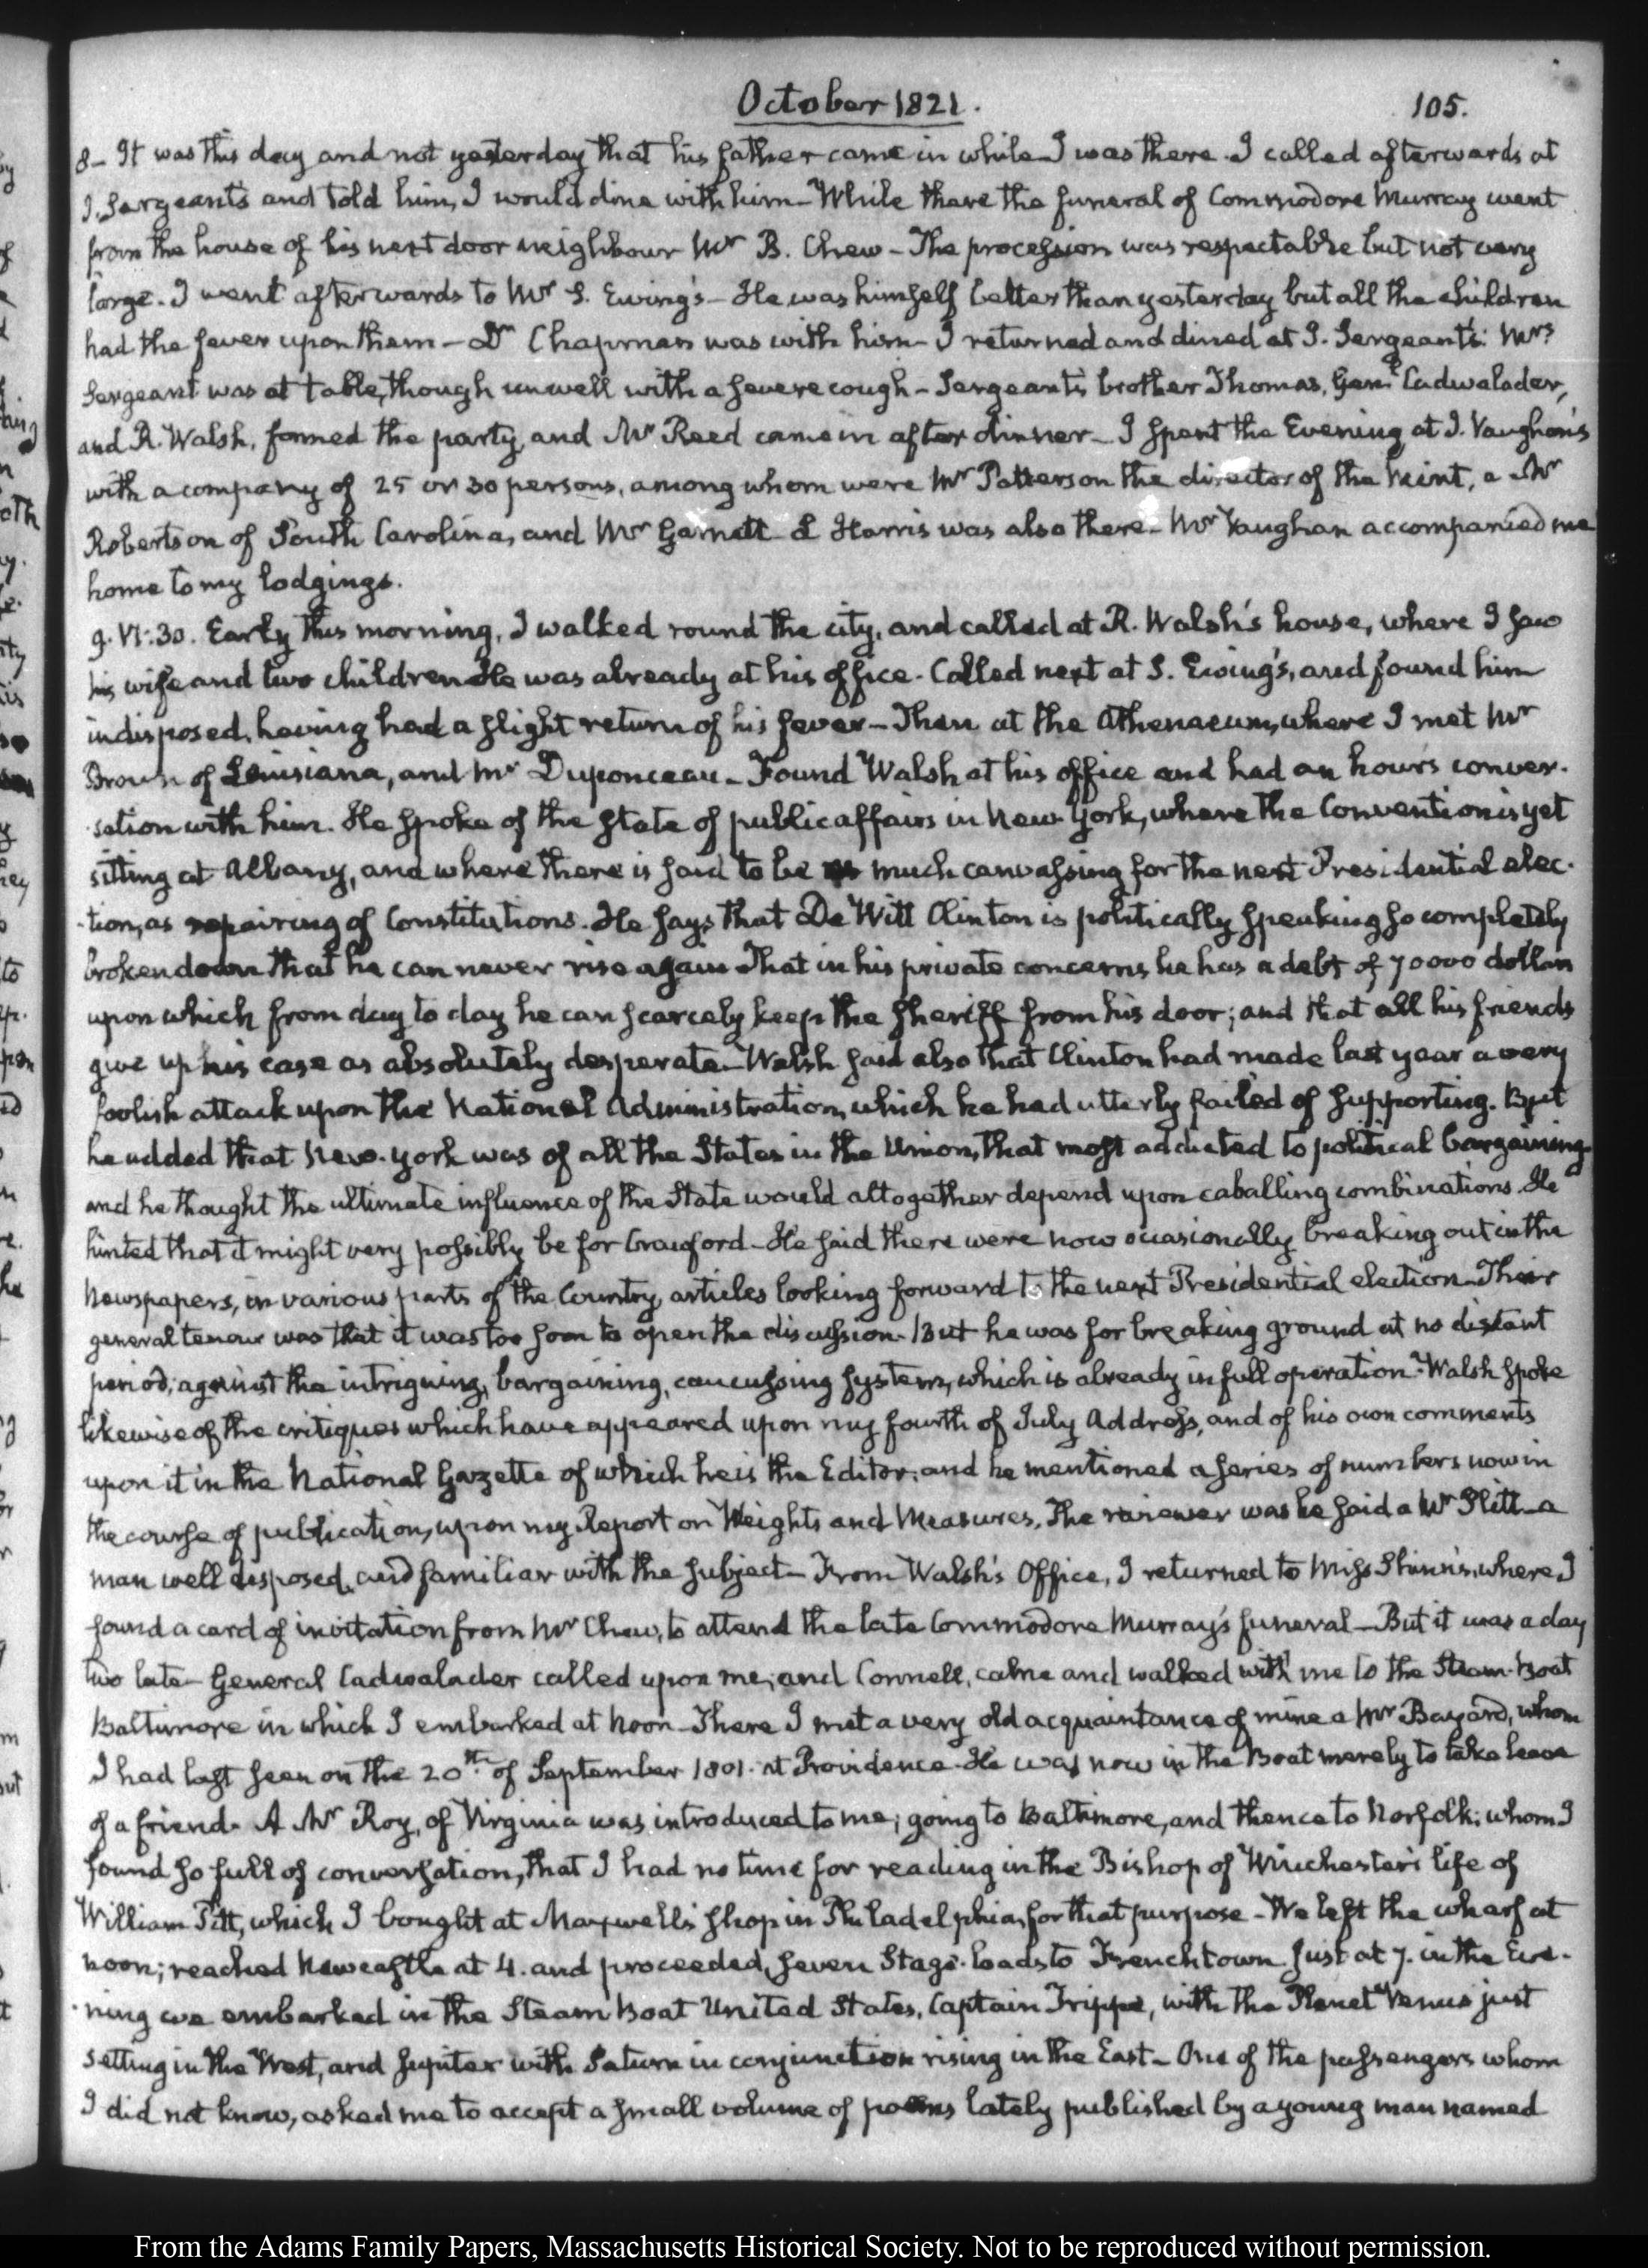 October 1821.
105.
8– It was this day and not yesterday that his father came in while I was there. I called afterwards at
J. Sergeant's and told him, I would dine with him– While there the funeral of Commodore Murray went
from the house of his next door neighbour Mr B. Chew– The procession was respectable but not very
large. I went afterwards to Mr S. Ewing's– He was himself better than yesterday but all the children
had the fever upon them– Dr Chapman was with him– I returned and dined at J. Sergeant's: Mrs
Sergeant was at table, though unwell with a severe cough– Sergeant's brother Thomas, Genl Cadwalader,
and R. Walsh, formed the party, and Mr Reed came in after dinner– I spent the Evening at J. Vaughan's
with a company of 25 or 30 persons, among whom were Mr Patterson the director of the Mint, a Mr
Robertson of South Carolina, and Mr Garnett. L Harris was also there– Mr Vaughan accompanied me
home to my lodgings.
9. VI:30. Early this morning, I walked round the city, and called at R. Walsh's house, where I saw
his wife and two children. He was already at his office. Called next at S. Ewing's, and found him
indisposed, having had a slight return of his fever– Then at the Athenaeum, where I met Mr
Brown of Louisiana, and Mr Duponceau– Found Walsh at his office and had an hour's conver-
-sation with him. He spoke of the state of public affairs in New-York, where the Convention is yet
sitting at Albany, and where there is said to be as much canvassing for the next Presidential elec-
-tion, as repairing of Constitutions. He says that De Witt Clinton is politically speaking so completely
broken down that he can never rise again. That in his private concerns he has a debt of 70000 dollars
upon which from day to day he can scarcely keep the Sheriff from his door; and that all his friends
give up his case as absolutely desperate– Walsh said also that Clinton had made last year a very
foolish attack upon the National Administration, which he had utterly failed of supporting. But
he added that New-York was of all the States in the Union, that most addicted to political bargaining
and he thought the ultimate influence of the State would altogether depend upon caballing combinations. He
hinted that it might very possibly be for Crawford– He said there were now occasionally breaking out in the
Newspapers, in various parts of the Country, articles looking forward to the next Presidential election– Their
general tenour was that it was too soon to open the discussion– But he was for breaking ground at no distant
period, against the intriguing, bargaining, caucussing system, which is already in full operation– Walsh spoke
likewise of the critiques which have appeared upon my fourth of July Address, and of his own comments
upon it in the National Gazette of which he is the Editor; and he mentioned a series of numbers now in
the course of publication, upon my Report on Weights and Measures, The reviewer was he said a Mr Slitt– a
man well disposed, and familiar with the subject– From Walsh's Office, I returned to Miss Shinn's, where I
found a card of invitation from Mr Chew, to attend the late Commodore Murray's funeral– But it was a day
two late– General Cadwalader called upon me; and Connell, came and walked with me to the Steam-Boat
Baltimore in which I embarked at Noon– There I met a very old acquaintance of mine a Mr Bayard, whom
I had last seen on the 20th of September 1801. at Providence– He was now in the Boat merely to take leave
of a friend– A Mr Roy, of Virginia was introduced to me; going to Baltimore, and thence to Norfolk; whom I
found so full of conversation, that I had no time for reading in the Bishop of Winchester's life of
William Pitt, which I bought at Maxwell's shop in Philadelphia, for that purpose– We left the wharf at
noon; reached Newcastle at 4. and proceeded, seven Stage-loads to Frenchtown. Just at 7. in the Eve-
-ning we embarked in the Steam Boat United States, Captain Trippe, with the Planet Venus just
setting in the West, and Jupiter with Saturn in conjunction rising in the East– One of the passengers whom
I did not know, asked me to accept a small volume of poems lately published by a young man named
From the Adams Family Papers, Massachusetts Historical Society. Not to be reproduced without permission.